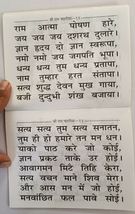 राम आत्मा पोषण हारे,
जय जय जय दशरथ दुलारे।
ज्ञान हृदय दो ज्ञान स्वरूपा,
नमो नमो जय जगपति भूपा।
धन्य धन्य तुम धन्य प्रतापा,
नाम तुम्हार हरत संतापा।
सत्य शुद्ध देवन मुख गाया,
बजी दुन्दुभी शंख बजाया।
सत्य सत्य तुम सत्य सनातन,
तुम ही हो हमरे तन मन धन।
याको पाठ करे जो कोई,
ज्ञान प्रकट ताके उर होई।
आवागमन मिटै तिहि केरा,
सत्य वचन माने शिव मेरा।
और आस मन में जो होई,
मनवांछित फल पावे सोई।